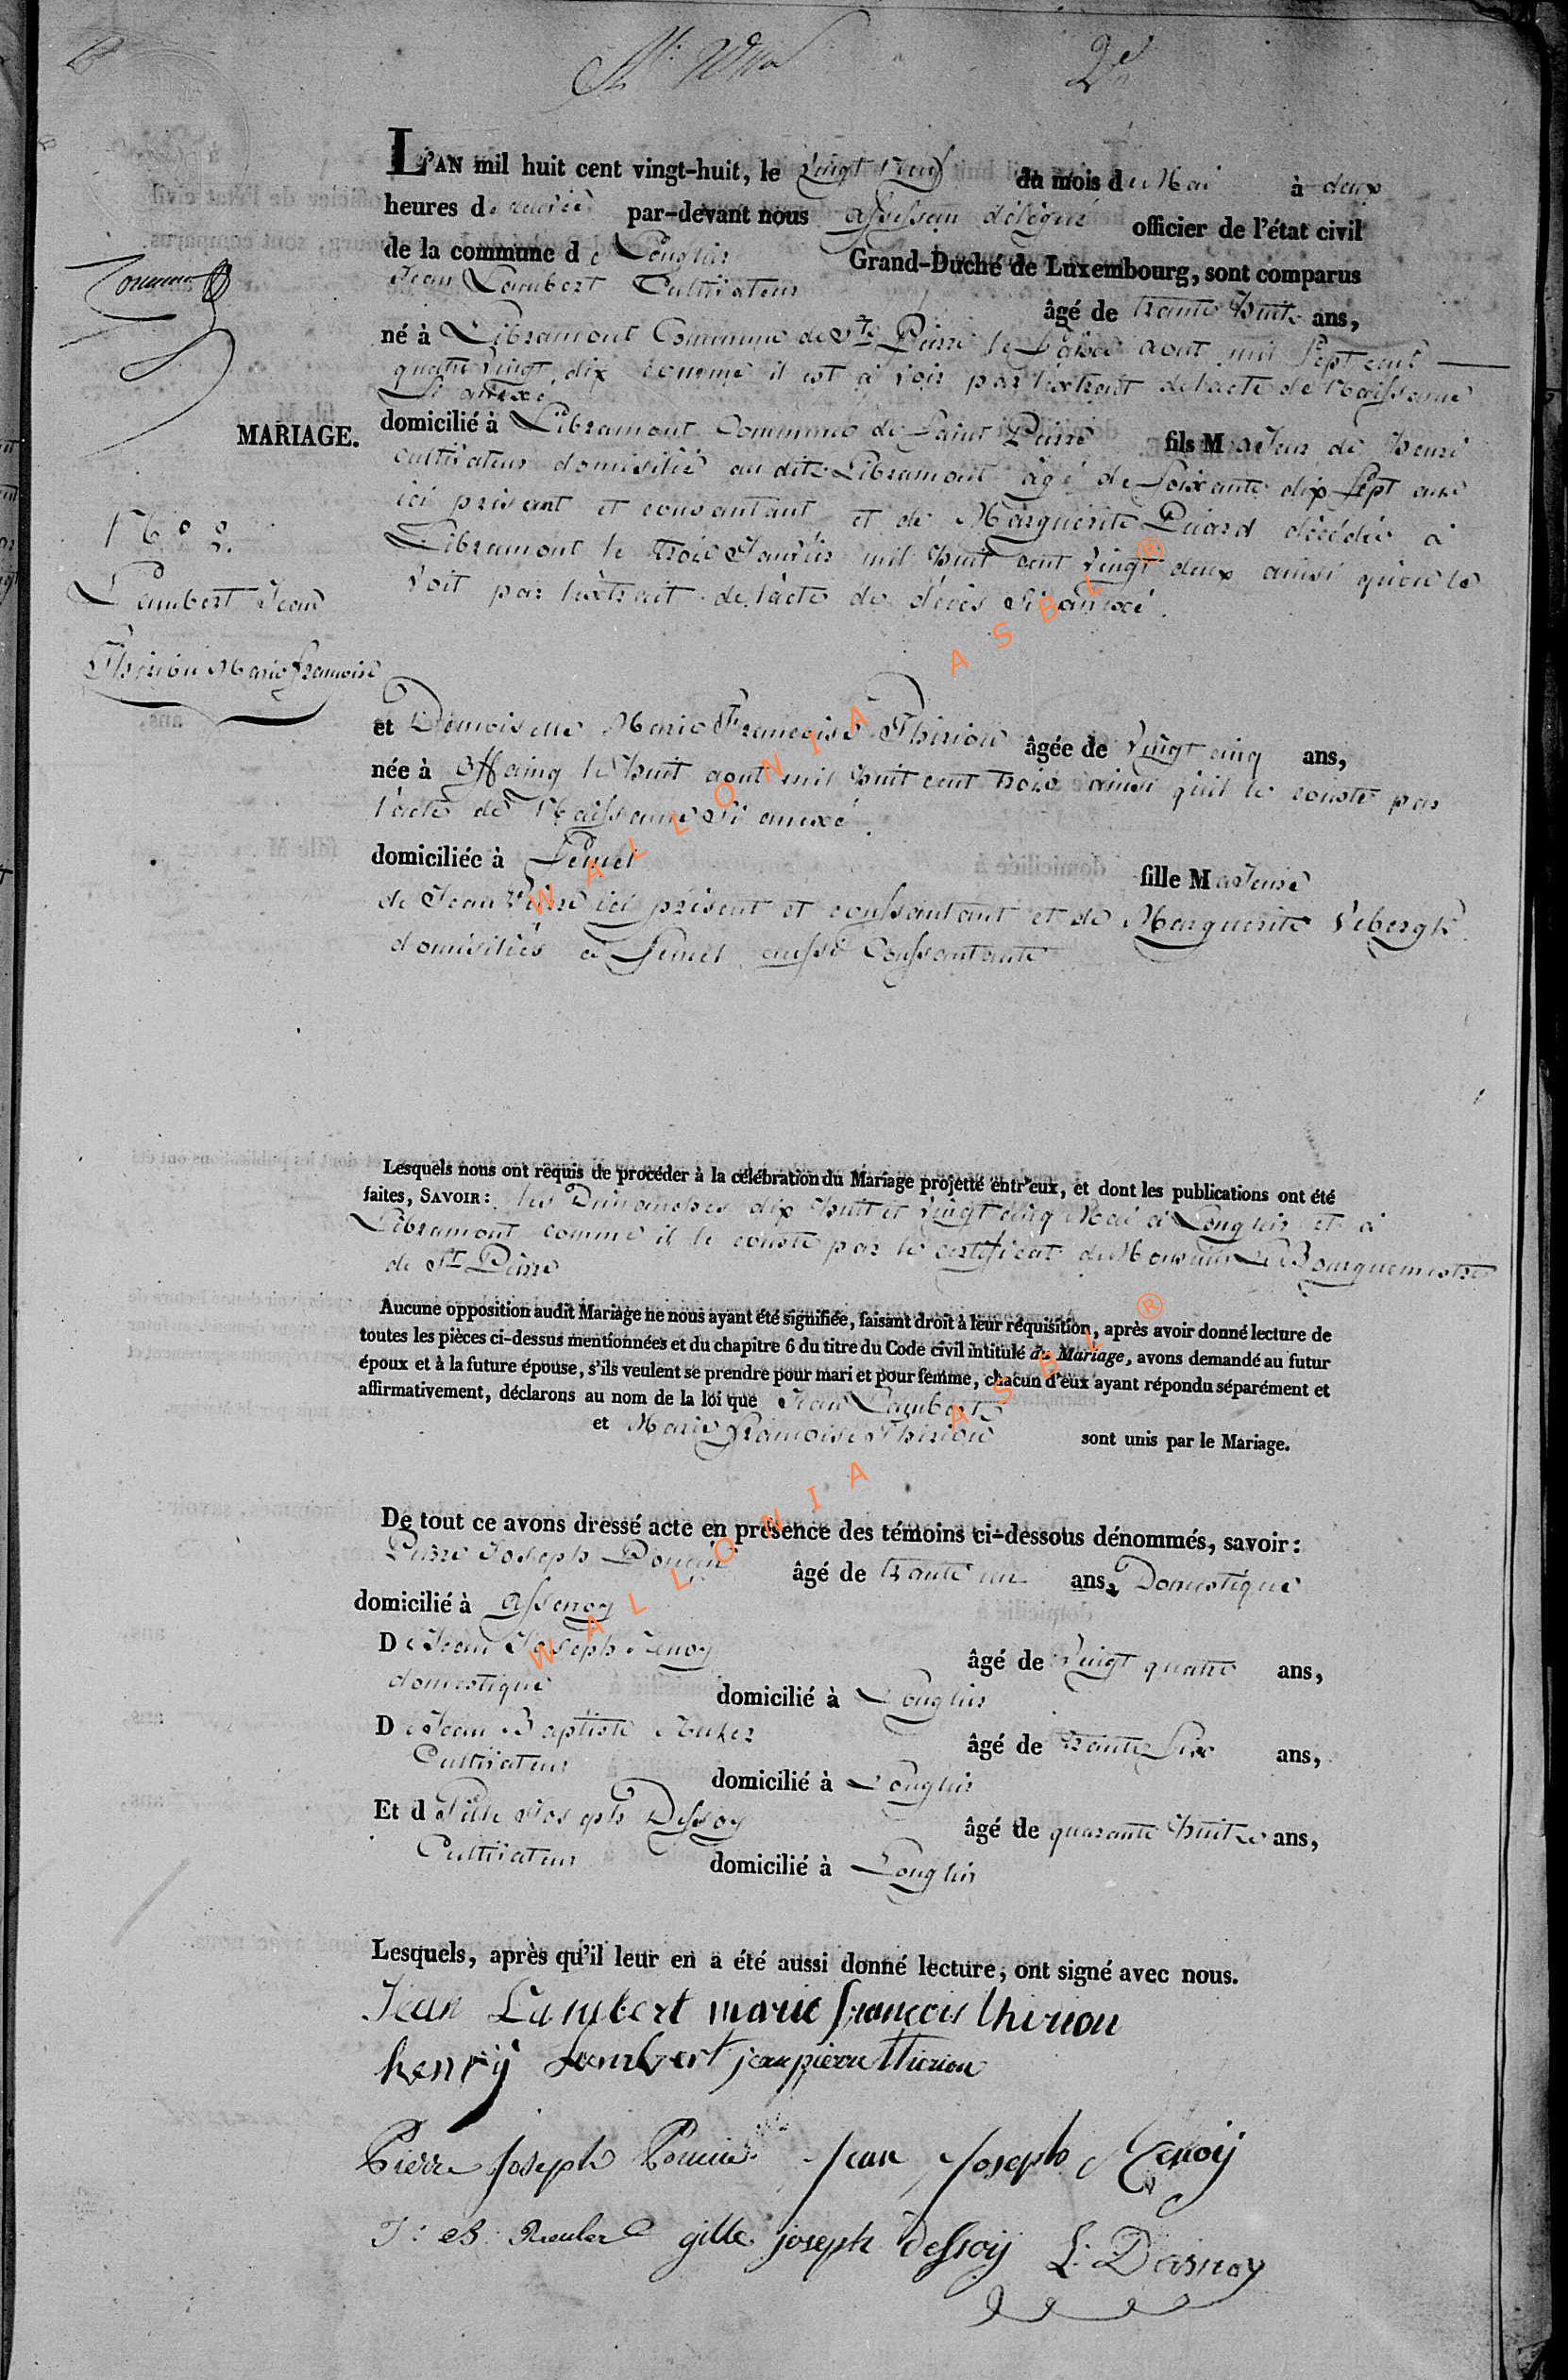 2e
L'AN mil huit cent vingt-huit, le vingt neuf du mois de Mai à deux
heures de par-devant nous assesseur délégué officier de l'état civil
de la commune de Longlier Grand-Duché de Luxembourg, sont comparus
Jean Lambert Cultivateur âgé de trante huit ans,
né à Libramont Commune de St Pierre le août mil sept cent
quatre vingt dix comme il est à voir par l'extrait de l'acte de Naissance
si anexé
MARIAGE.
domicilié à Libramont Commune de Saint Pierre fils Majeur de henri
cultivateur domisilié au dit Libramont âgé de soixante dix sept ans
ici présent et consantant et de Marguerite Piard décédée à
Libramont le trois Janvier mil huit cent vingt deux ainsi qu'on le
voit par l'extrait de l'acte de décès si anexé.
No 2.
Lambert Jean
Thirion Marie françoise
et Demoiselle Marie Francoise Thirion âgée de vingt cinq ans,
née à Offaing le huit août mil huit cent trois ainsi qu'il le conste par
l'acte de Naissance si anexé.
domiciliée à Semel fille Majeure
de Jean Pierre ici présent et conssantant et de Marguerite Vebergh
domisiliés à Semel aussi Conssantante
Lesquels nous ont requis de procéder à la célébration du Mariage projetté entr'eux, et dont les publications ont été
faites, SAVOIR: les Dimanches dix huit et vingt cinq Mai à Longlier et à
Libramont comme il le conste par le certificat de Monsieur Le Bourguemestre
de St Pierre
Aucune opposition audit Mariage ne nous ayant été signifiée, faisant droit à leur réquisition, après avoir donné lecture de
toutes les pièces ci-dessus mentionnées et du chapitre 6 du titre du Code civil intitulé du Mariage, avons demandé au futur
époux et à la future épouse, s'ils veulent se prendre pour mari et pour femme, chacun d'eux ayant répondu séparément et
affirmativement, déclarons au nom de la loi que Jean Lambert
et Marie françoise Thirion sont unis par le Mariage.
De tout ce avons dressé acte en présence des témoins ci-dessous dénommés, savoir:
Pierre Joseph Poncin âgé de trante un ans, Domestique
domicilié à Assenoy
De Jean Joseph Genoy âgé de vingt quatre ans,
domestique domicilié à Longlier
De Jean Baptiste Reuler âgé de trante six ans,
Cultivateur domicilié à Longlier
Et d Gille Joseph Dessoy âgé de quarante huit ans,
Cultivateur domicilié à Longlier
Lesquels, après qu'il leur en a été aussi donné lecture, ont signé avec nous.
Jean Lambert marie françois thirion
henrÿ Lambert jean pierre thirion
Pierre Joseph Poncin Jean Joseph Genoÿ
J: B: Reuler gille joseph dessoÿ L: Dasnoy
WALLONIA ASBL ®
WALLONIA ASBL ®